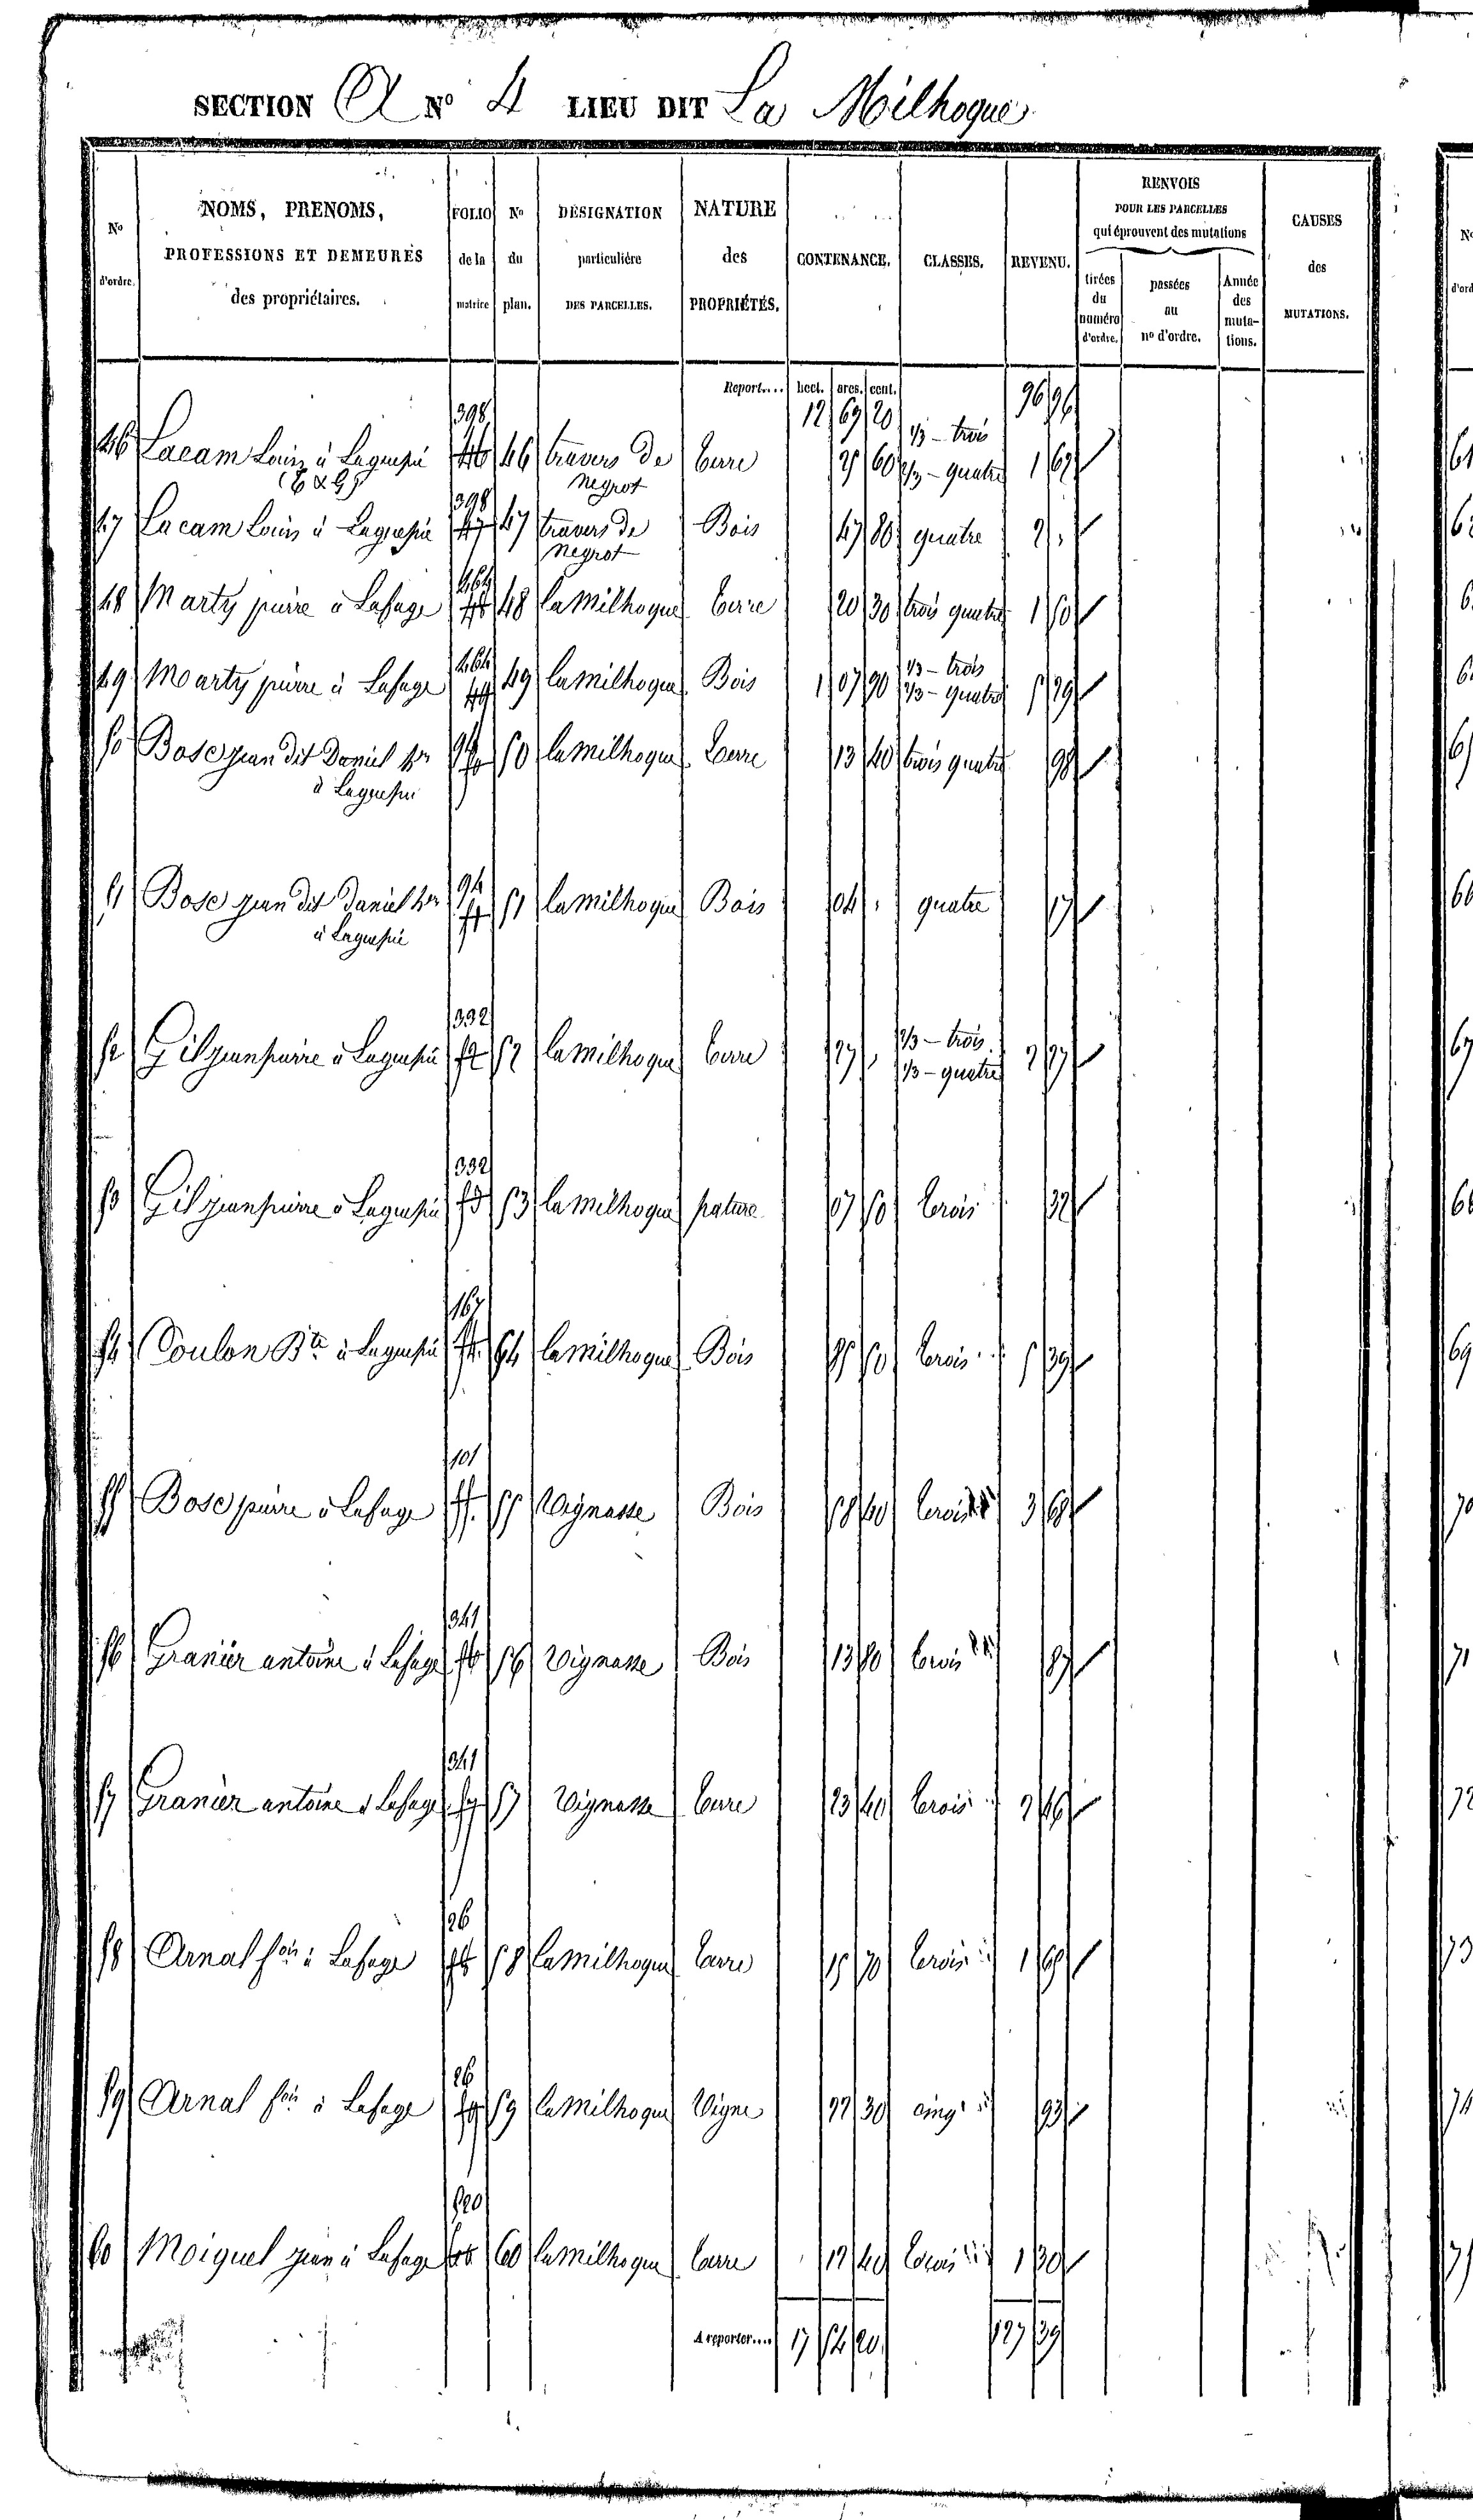 SECTION A N° 4 LIEU DIT La Milhoque
N° d'ordre.
NOMS, PRENOMS, PROFESSIONS ET DEMEURES des propriétaires.
FOLIO de la matrice
N° du plan.
DÉSIGNATION particulière DES PARCELLES.
NATURE des PROPRIÉTÉS.
CONTENANCE.
CLASSES.
REVENU.
RENVOIS POUR LES PARCELLES qui éprouvent des mutations
tirées du numéro d'ordre.
passées au n° d'ordre.
Année des mutations.
CAUSES des MUTATIONS.
Report.... hect. ares. cent.
12 69 20 96 96
398 1/3 - trois
46 Lacam Louis à Laguépie 46 46 travers de negrot terre 25 60 2/3 - quatre 1 62
398
47 Lacam Louis à Laguépie 47 47 travers de negrot Bois 47 80 quatre 2
464
48 Marty pierre à Lafage 48 48 la milhoque terre 20 30 trois quatre 1 50
464 1/3 - trois
49 Marty pierre à Lafage 49 49 la milhoque Bois 1 07 90 2/3 - quatre 5 29
94
50 Bosc jean dit Daniel à Laguépie 50 50 la milhoque terre 13 40 trois quatre 98
94
51 Bosc jean dit Daniel à Laguépie 51 51 la milhoque Bois 04 quatre 17
332 2/3 - trois
52 Gil jean pierre à Laguépie 52 52 la milhoque terre 27 1/3 - quatre 2 27
332
53 Gil jean pierre à Laguépie 53 53 la milhoque pature 07 50 trois 32
167
54 Coulon Bte à Laguépie 54 54 la milhoque Bois 85 50 trois 5 39
101
55 Bosc pierre à Lafage 55 55 Vignasse Bois 58 40 trois 3 68
341
56 Granier antoine à Lafage 56 56 Vignasse Bois 13 80 trois 87
341
57 Granier antoine à Lafage 57 57 Vignasse terre 23 40 trois 2 46
26
58 Arnal à Lafage 58 58 la milhoque terre 15 70 trois 1 65
26
59 Arnal à Lafage 59 59 la milhoque Vigne 22 30 cinq 93
520
60 Moiquel jean à Lafage 60 60 la milhoque terre 12 40 trois 1 30
A reporter.... 17 54 20 127 39